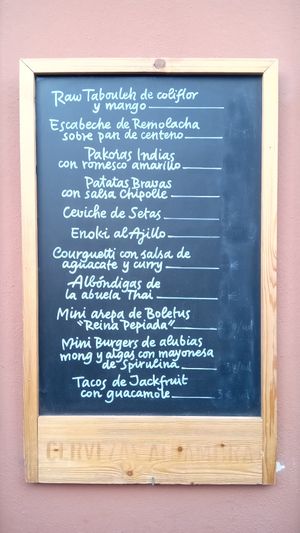 Raw Tabouleh de coliflor
y mango
Escabeche de Remolacha
sobre pan de centeno
Pakoras Indias
con romesco amarillo
Patatas Bravas
con salsa Chipotle
Ceviche de Setas
Enoki al Ajillo
Courguetti con salsa de
aguacate y curry
Albóndigas de
la abuela Thai
Mini arepa de Boletus
"Reina Pepiada"
Mini Burgers de alubias
mong y algas con mayonesa
de Spirulina
Tacos de Jackfruit
con guacamole
CERVEZAS ALHAMBRA